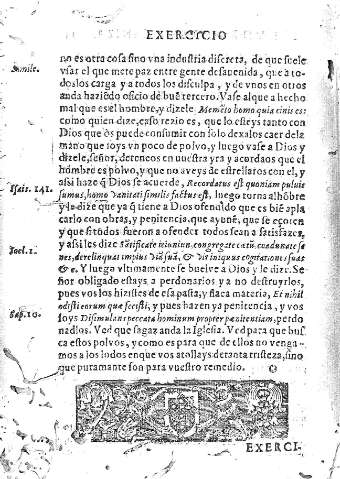 EXERCICIO
no es otra cosa sino vna industria discreta, de que suele
Simile.
vsar el que mete paz entre gente desauenida, que a to-
dos los carga y a todos los disculpa, y de vnos en otros
anda haziẽdo oficio de buẽ tercero. Vase al que a hecho
mal que es el hombre, y dizele Memẽto homo quia cinis es:
como quien dize, en so rezio es, que lo esteys tanto con
Dios que os puede consumir con solo dexalos caer de la
mano que soys vn poco de polvo, y luego vase a Dios y
dizele, señor, deteneos en vuestra yra y acordaos que el
hõmbre es polvo, y que no aveys de estrellaros con el, y
Psalt. 141.
assi haze q̃ Dios se acuerde, Recordatus est quoniam puluis
sumus, homo vanitati similis factus est, luego torna al hõbre
y le dize que ya q̃ tiene a Dios ofendido que es biẽ apla
carlo con obras, y penitencia. que ayune, que se açoten
y que si todos fueron a ofender todos sean a satisfazer,
Joel. 1.
y assi les dize sãtificate ieiunium, congregate cœtũ, coadunate se
nes, derelinquat impius viã suã, & vir iniquus cogitationes suas
&c. Y luego vltimamente se buelve a Dios y le dize. Se-
ñor obligado estays a perdonarlos y a no destruyrlos,
pues vos los hizistes de esa pasta, y flaca materia, Et nihil
odisti eorum quæ fecisti, y pues hazen ya penitencia, y vos
Sap. 10.
soys Disimulans peccata hominum propter pœnitentiam, perdo
nadlos. Ved que sagaz anda la Iglesia. Ved para que bus
ca estos polvos, y como es para que de ellos no venga-
mos a los lodos en que vos atollays de tanta tristeza, sino
que puramante son para vuestro remedio.
EXERCI-